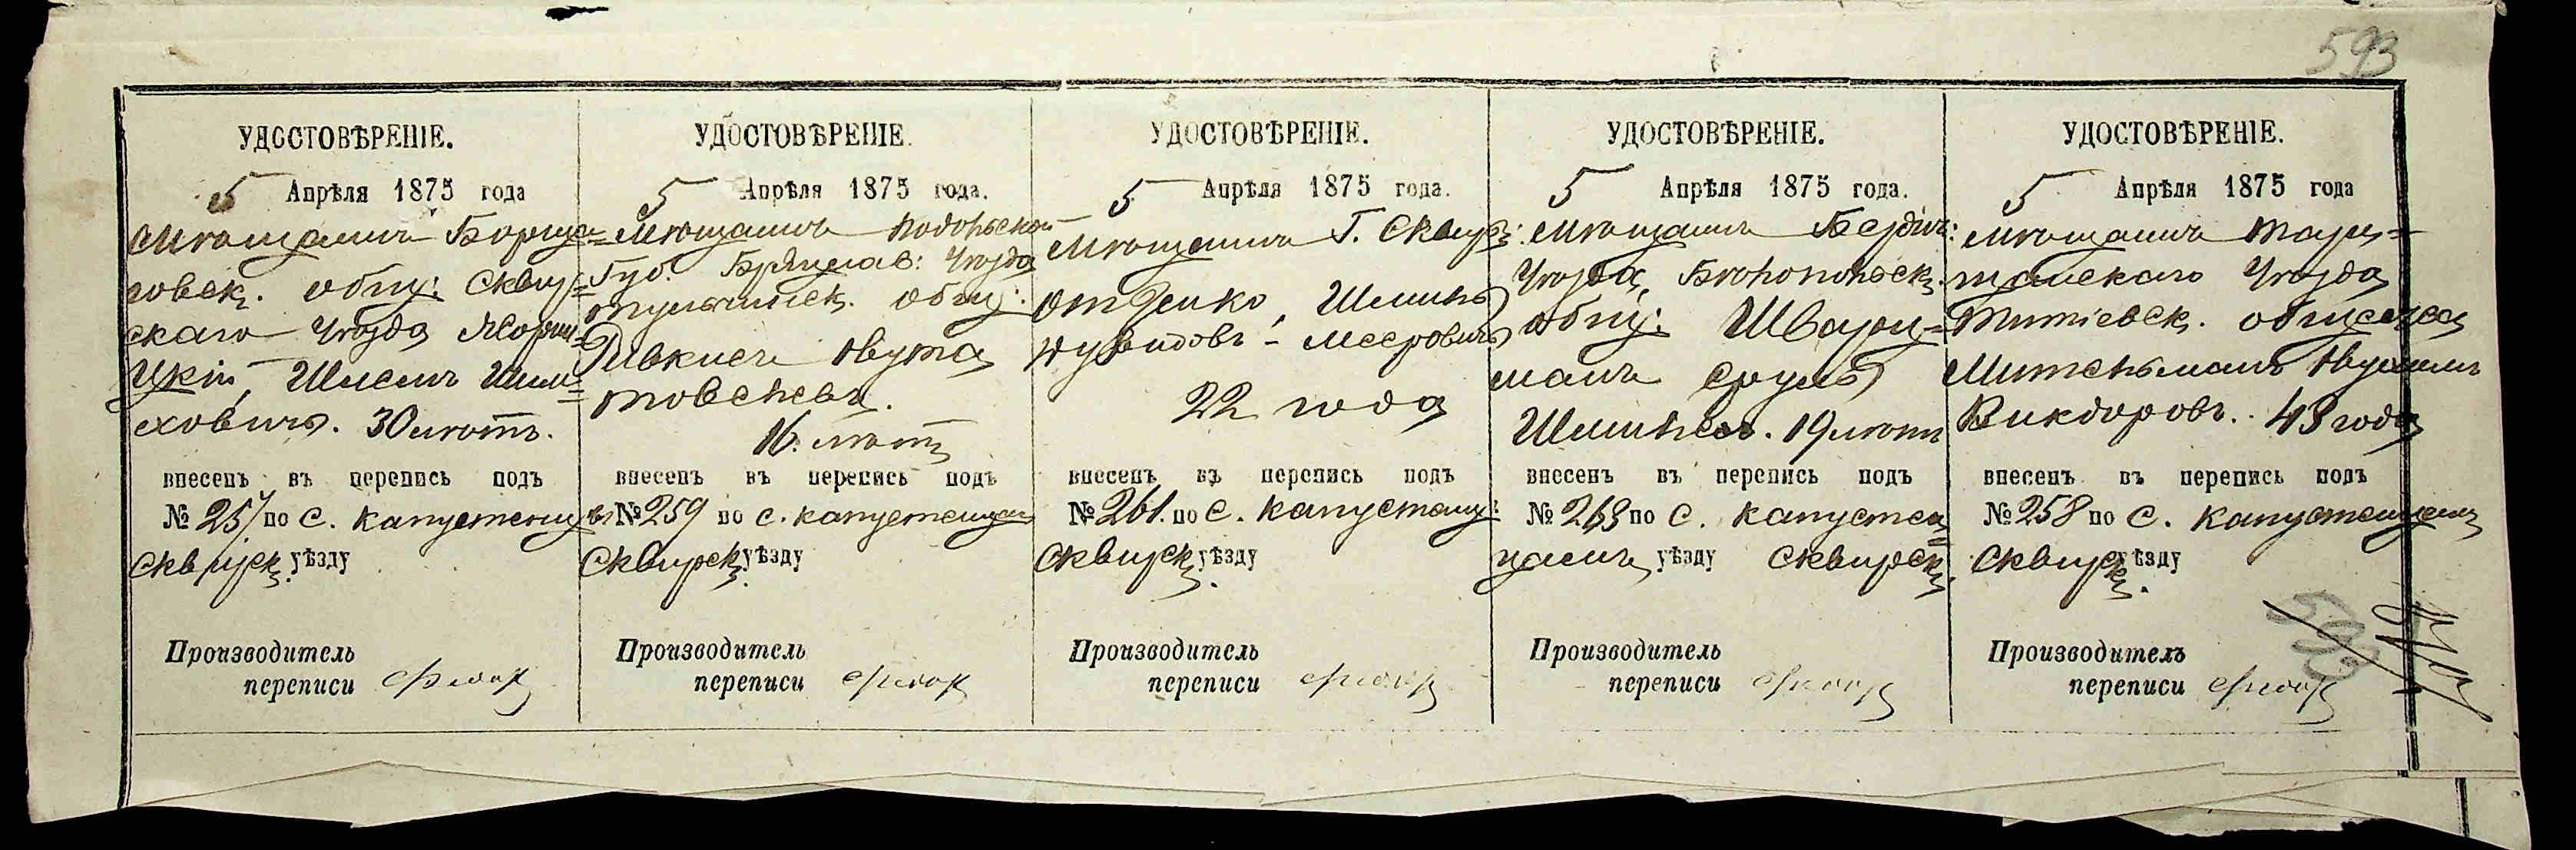 593
УДОСТОВѢРЕНІЕ.
5 Апрѣля 1875 года
Мѣщанинъ Борща=
говск. общ: Сквир=
скаго Уѣзда Яворни=
цкій, Шмель Шим=
ховичъ. 30 лѣтъ.
внесенъ въ перепись подъ
№ 257 по с. Капустенц
Сквирск. уѣзду
Производитель
переписи
УДОСТОВѢРЕНІЕ.
5 Апрѣля 1875 года.
Мѣщанинъ Подольской
Губ. Брацлав: Уѣзда
Тульчинск. общ:
Ривкисъ
16. лѣтъ
внесенъ въ перепись подъ
№ 259 по с. Капустенцам
Сквирск. уѣзду
Производитель
переписи
УДОСТОВѢРЕНІЕ.
5 Апрѣля 1875 года.
Мѣщанинъ Г. Сквир:
Шмилъ
Мееровичъ
22 года
внесенъ въ перепись подъ
№ 261. по с. Капустенц:
Сквирск. уѣзду
Производитель
переписи
УДОСТОВѢРЕНІЕ.
5 Апрѣля 1875 года.
Мѣщанинъ Бердич:
Уѣзда, Бѣлопольск.
общ: Шварц=
манъ Сруль
19 лѣтъ
внесенъ въ перепись подъ
№ 263 по с. Капустен
цамъ уѣзду Сквирск.
Производитель
переписи
УДОСТОВѢРЕНІЕ.
5 Апрѣля 1875 года
Мѣщанинъ Тара=
щанскаго Уѣзда
Тетіевск. общества
Мительманъ
Викдоровъ. 43 года
внесенъ въ перепись подъ
№ 258 по с. Капустенцам
Сквирск. уѣзду
Производитель
переписи
593